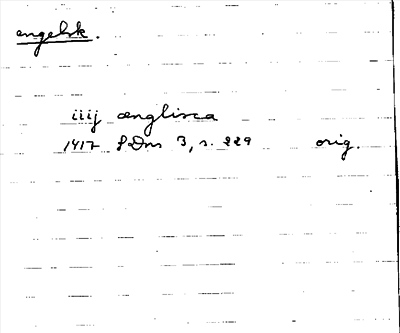 engelsk.
iiij ænglisca
1417 SDns 3, s. 229 orig.